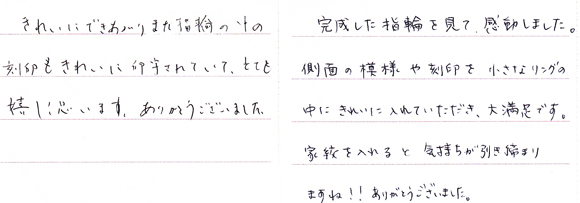 きれいにできあがりまた指輪の中の
刻印もきれいに印字されていて、とても
嬉しく思います。ありがとうございました。
完成した指輪を見て、感動しました。
側面の模様や刻印を小さなリングの
中にきれいに入れていただき、大満足です。
家紋を入れると気持ちが引き締まり
ますね!!ありがとうございました。